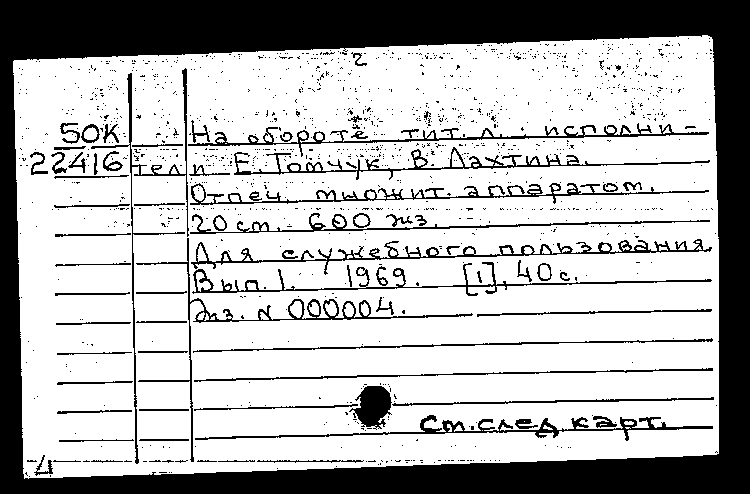 2
50К На обороте тит. л.: исполни-
22416 тели Е. Томчук, В. Лахтина.
Отпеч. множит. аппаратом.
20 см. 600 экз.
Для служебного пользования.
Вып. 1. 1969. [1], 40 с.
Экз. N 000004.
См. след. карт.